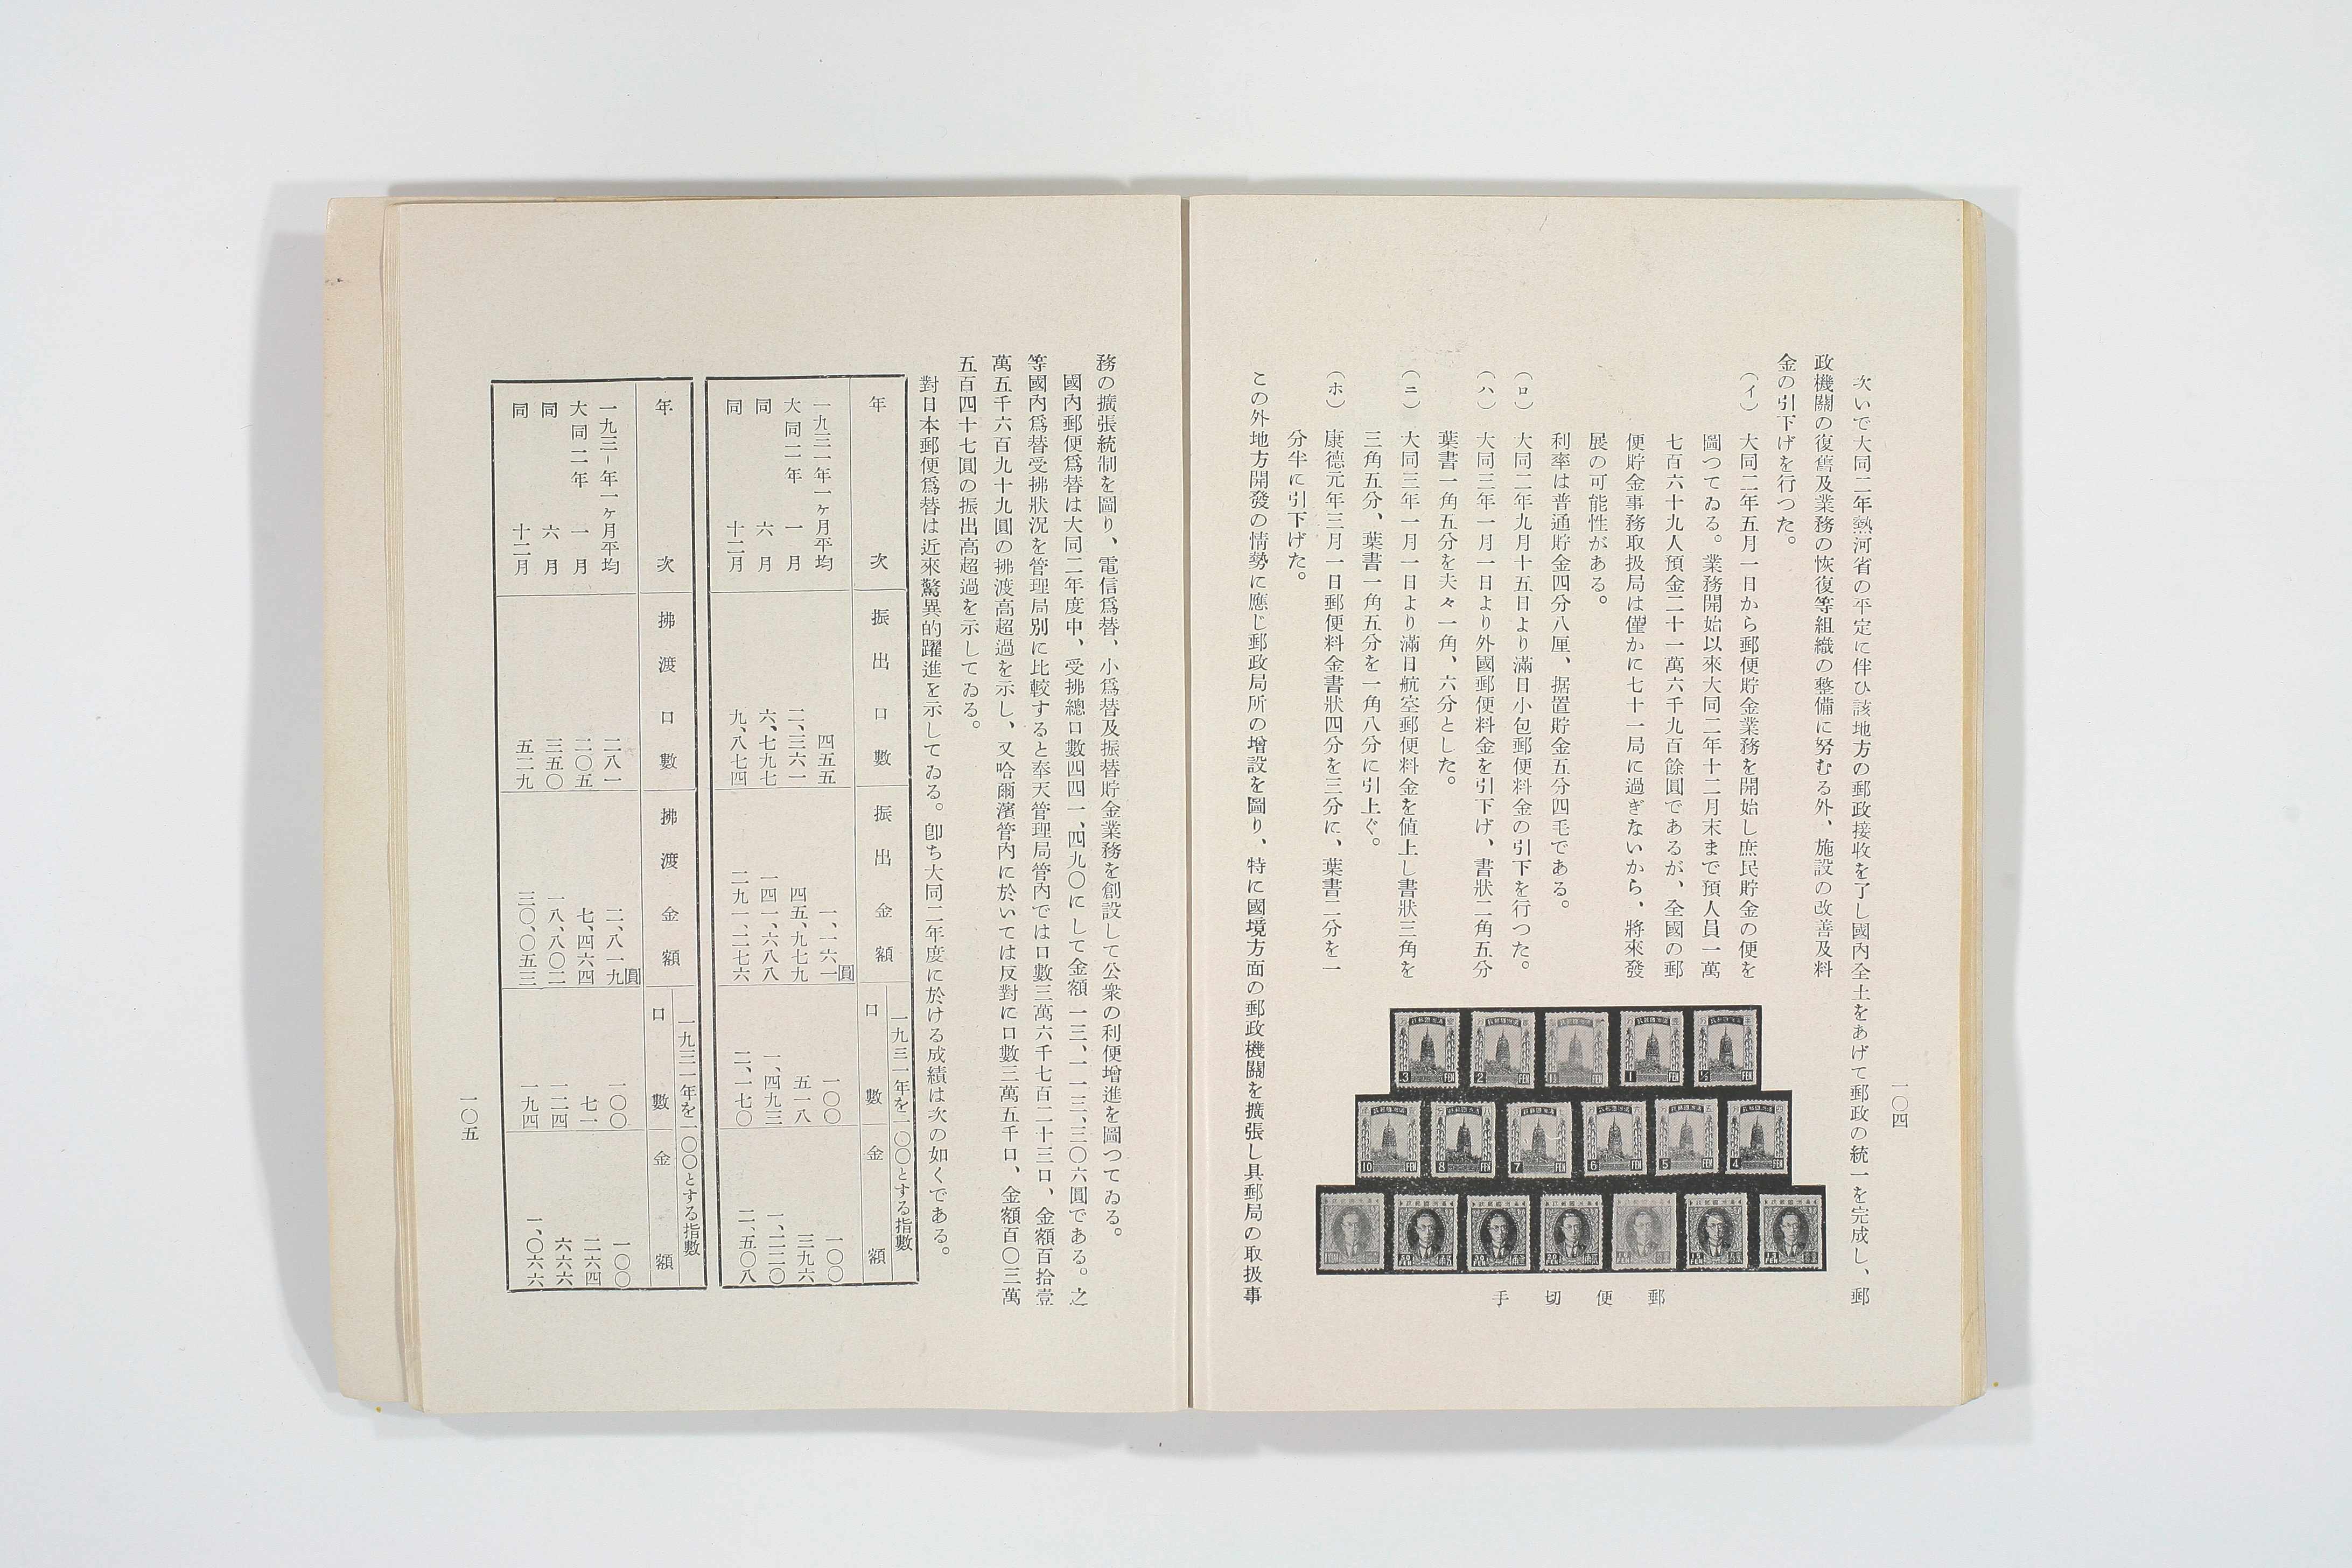 一〇四
次いで大同二年熱河省の平定に伴ひ該地方の郵政接收を了し國內全土をあげて郵政の統一を完成し、郵
政機關の復舊及業務の恢復等組織の整備に努むる外、施設の改善及料
金の引下げを行つた。
（イ）　大同二年五月一日から郵便貯金業務を開始し庶民貯金の便を
圖つてゐる。業務開始以來大同二年十二月末まで預人員一萬
七百六十九人預金二十一萬六千九百餘圓であるが、全國の郵
便貯金事務取扱局は僅かに七十一局に過ぎないから、將來發
展の可能性がある。
利率は普通貯金四分八厘、据置貯金五分四毛である。
（ロ）　大同二年九月十五日より滿日小包郵便料金の引下を行つた。
（ハ）　大同三年一月一日より外國郵便料金を引下げ、書狀二角五分
葉書一角五分を夫々一角、六分とした。
（ニ）　大同三年一月一日より滿日航空郵便料金を値上し書狀三角を
三角五分、葉書一角五分を一角八分に引上ぐ。
（ホ）　康德元年三月一日郵便料金書狀四分を三分に、葉書二分を一
分半に引下げた。
この外地方開發の情勢に應じ郵政局所の增設を圖り、特に國境方面の郵政機關を擴張し具郵局の取扱事
3 FEN 2 FEN 1½ FEN 1 FEN ½ FEN
10 FEN 8 FEN 7 FEN 6 FEN 5 FEN 4 FEN
手切便郵
務の擴張統制を圖り、電信爲替、小爲替及振替貯金業務を創設して公衆の利便增進を圖つてゐる。
國內郵便爲替は大同二年度中、受拂總口數四四一、四九〇にして金額一三、一一三、三〇六圓である。之
等國內爲替受拂狀況を管理局別に比較すると奉天管理局管內では口數三萬六千七百二十三口、金額百拾壹
萬五千六百九十九圓の拂渡高超過を示し、又哈爾濱管內に於いては反對に口數三萬五千口、金額百〇三萬
五百四十七圓の振出高超過を示してゐる。
對日本郵便爲替は近來驚異的躍進を示してゐる。卽ち大同二年度に於ける成績は次の如くである。
年次　振出口數　振出金額　一九三一年を一〇〇とする指數　口數　金額
一九三一年一ヶ月平均　四五五　一、一六一圓　一〇〇　一〇〇
大同二年一月　二、三六一　四五、九七九　五一八　三九六
同六月　六、七九七　一四一、六八八　一、四九三　一、二二〇
同十二月　九、八七四　二九一、二七六　二、一七〇　二、五〇八
年次　拂渡口數　拂渡金額　一九三一年を一〇〇とする指數　口數　金額
一九三一年一ヶ月平均　二八一　二、八一九圓　一〇〇　一〇〇
大同二年一月　二〇五　七、四六四　七一　二六四
同六月　三五〇　一八、八〇二　一二四　六六六
同十二月　五二九　三〇、〇五三　一九四　一、〇六六
一〇五